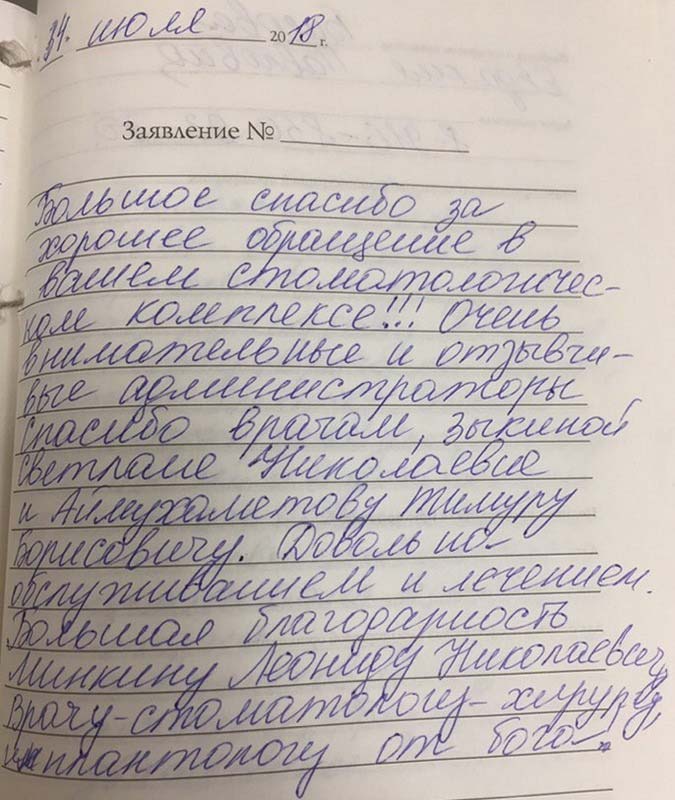 июля 2018 г.
Заявление №
Большое спасибо за
хорошее обращение в
вашем стоматологичес-
ком комплексе!!! Очень
внимательные и отзывчи-
вые администраторы
Спасибо врачам, Зыкиной
Светлане Николаевне
и Аймухаметову Тимуру
Борисовичу. Довольно-
обслуживанием и лечением.
Большая благодарность
Минкину Леониду Николаевичу
Врачу-стоматологу-хирургу,
имплантологу от бога-